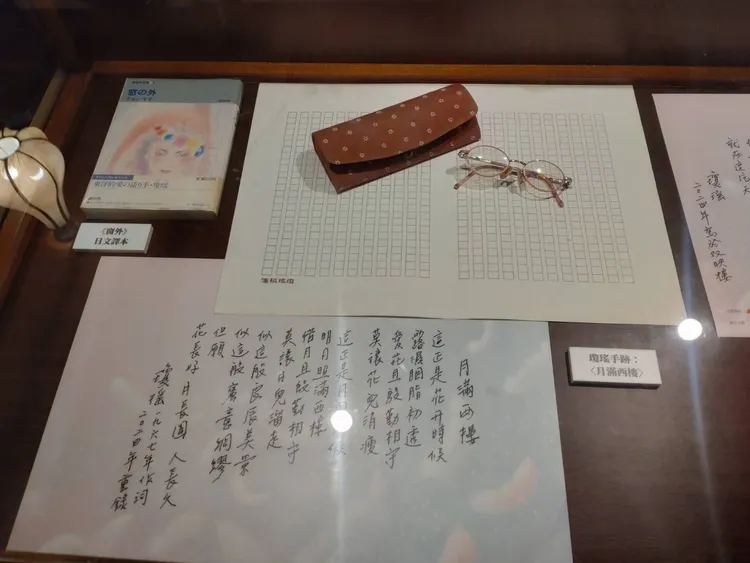 窓の外
東洋的愛の語り手・瓊瑤
《窗外》
日文譯本
箋稿瑤瓊
瓊瑤
二〇二四年寫於双映樓
瓊瑤手跡：
〈月滿西樓〉
月滿西樓
這正是花开時候
露濕胭脂初透
愛花且殷勤相守
莫讓花兒消瘦
這正是月候
明月照滿西樓
惜月且殷勤相守
莫讓月兒溜走
似這般良辰美景
似這般蜜意綢繆
但願
花長好 月長圓 人長久
瓊瑤一九六七年作詞
二〇二四年重錄